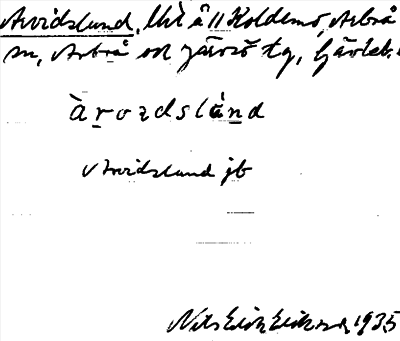 Arvidslund, litt å 11 Koldemo, Arbrå
sn, Arbrå och Järvsö tg, Gävleb.
àrvɩdslánd
Arvidslund jb
Nils Erik Eriksson, 1935